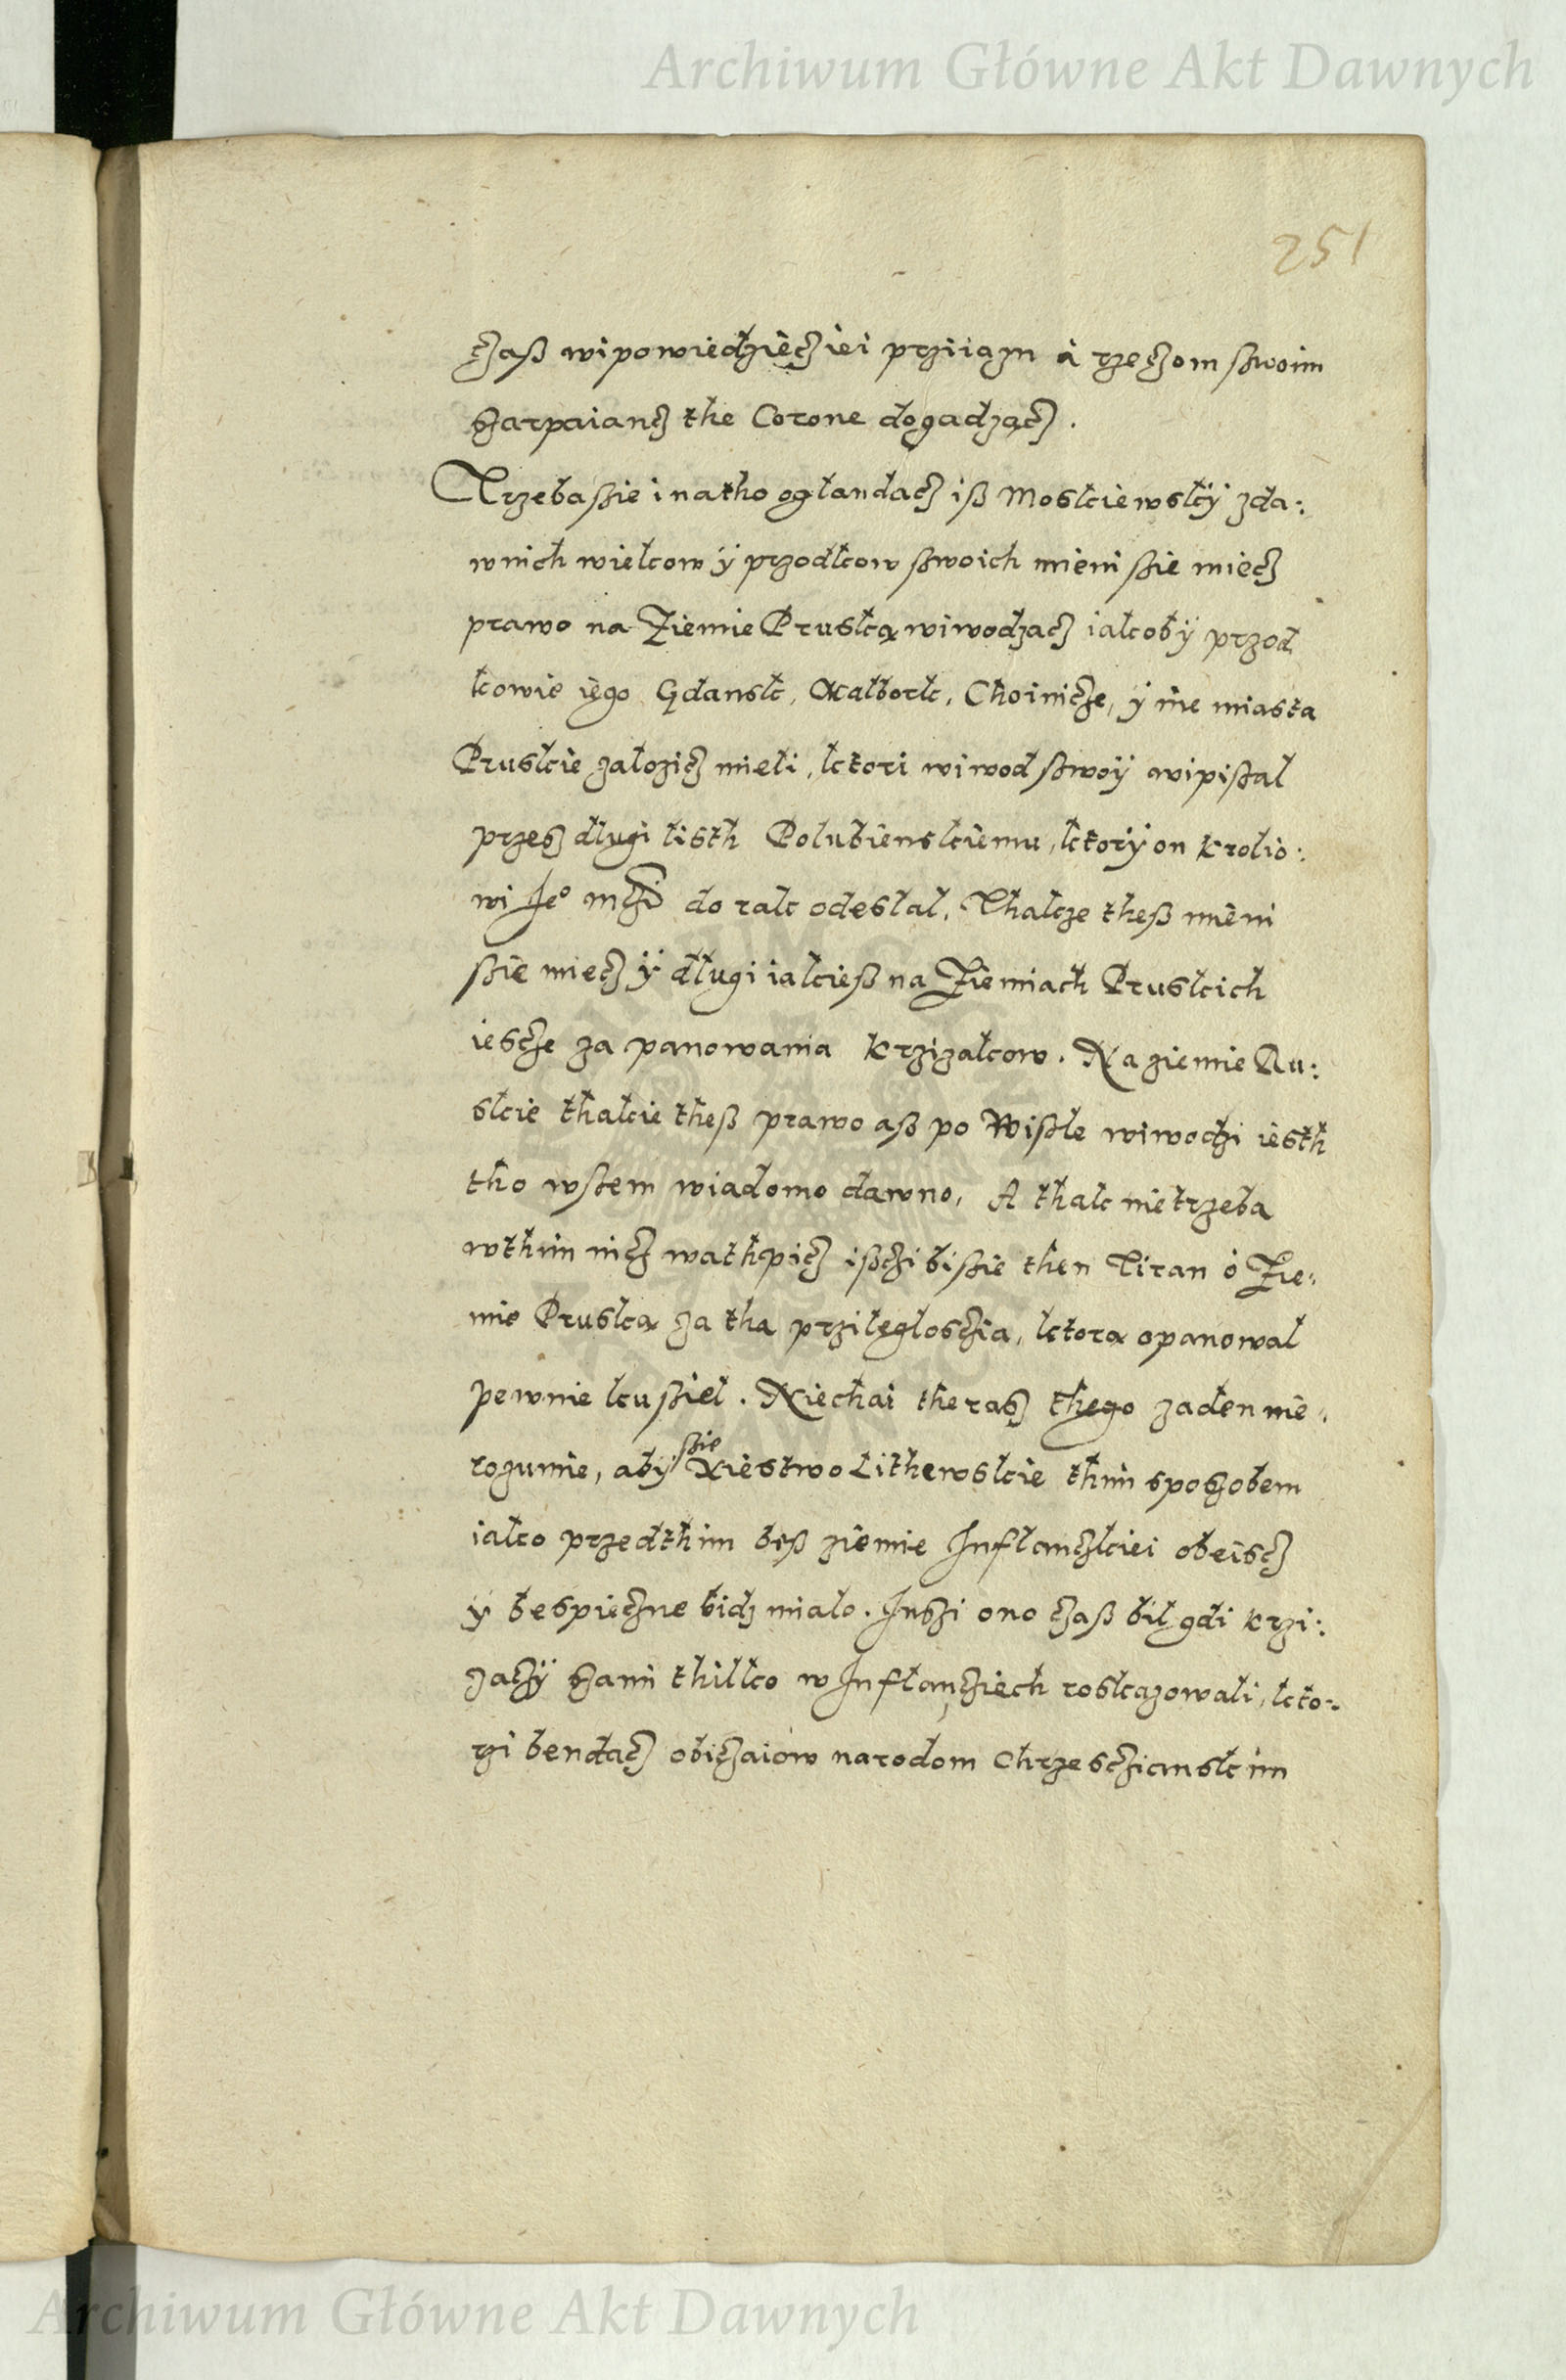 Archiwum Główne Akt Dawnych
251
czaß wipowiedzieć iei prziiazn à rzeczom swoim
szarpaiancz the Corone dogadzącz.
Trzeba szie i natho oglandacz iß Moskiewsky zda:
wnich wiekow y przodkow swoich mieni szie miecz
prawo na Ziemie Pruską wiwodzacz iakoby przod
kowie iego Gdansk, Malbork, Choinicze, y ine miasta
Pruskie zalozicz mieli, ktori wiwod swoy wipisal
przesz dlugi listh Polubienskiemu, ktory on krolio:
wi Jeº mczi do rak odeslal, Thakze theß mieni
szie miecz y dlugi iakieß na Ziemiach Pruskich
iescze za panowania krzizakow. Na ziemie Ru:
skie thakie theß prawo aß po Wisle wiwodzi iesth
tho wszem wiadomo dawno, A thak nietrzeba
wthim nicz wathpicz isczibiszie then Tiran o Zie:
mie Pruską za tha przileglosczia, ktorą opanowal
pewnie kusziel. Niechai therasz thego zaden nie:
rozumie, aby szie Xiestwo Lithewskie thim sposzobem
iako przedthim beß ziemie Inflanczkiei obeiscz
y bespieczne bidz mialo. Inszi ono czaß bil gdi krzi:
zaczy szami thilko w Inflanciech roskazowali, kto:
rzi bendacz obiczaiow narodom Chrzesczianskim
Archiwum Główne Akt Dawnych